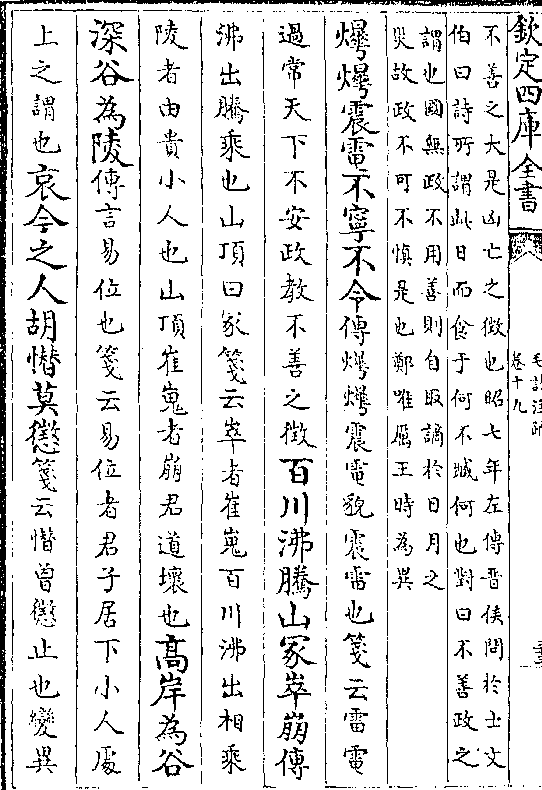 欽定四庫全書
毛詩注疏
卷十九
不善之大是凶亡之徴也昭七年左傳晉侯問於士文
伯曰詩所謂此日而食于何不臧何也對曰不善政之
謂也國無政不用善則自取謫於日月之
災故政不可不慎是也鄭唯厲王時為異
爗爗震電不寧不令傳爗爗震電貌震雷也箋云雷電
過常天下不安政教不善之徵百川沸騰山冢崒崩傳
沸出騰乘也山頂曰冢箋云崒者崔嵬百川沸出相乘
陵者由貴小人也山頂崔嵬者崩君道壞也高岸為谷
深谷為陵傳言易位也箋云易位者君子居下小人處
上之謂也哀今之人胡憯莫懲箋云憯曽懲止也變異